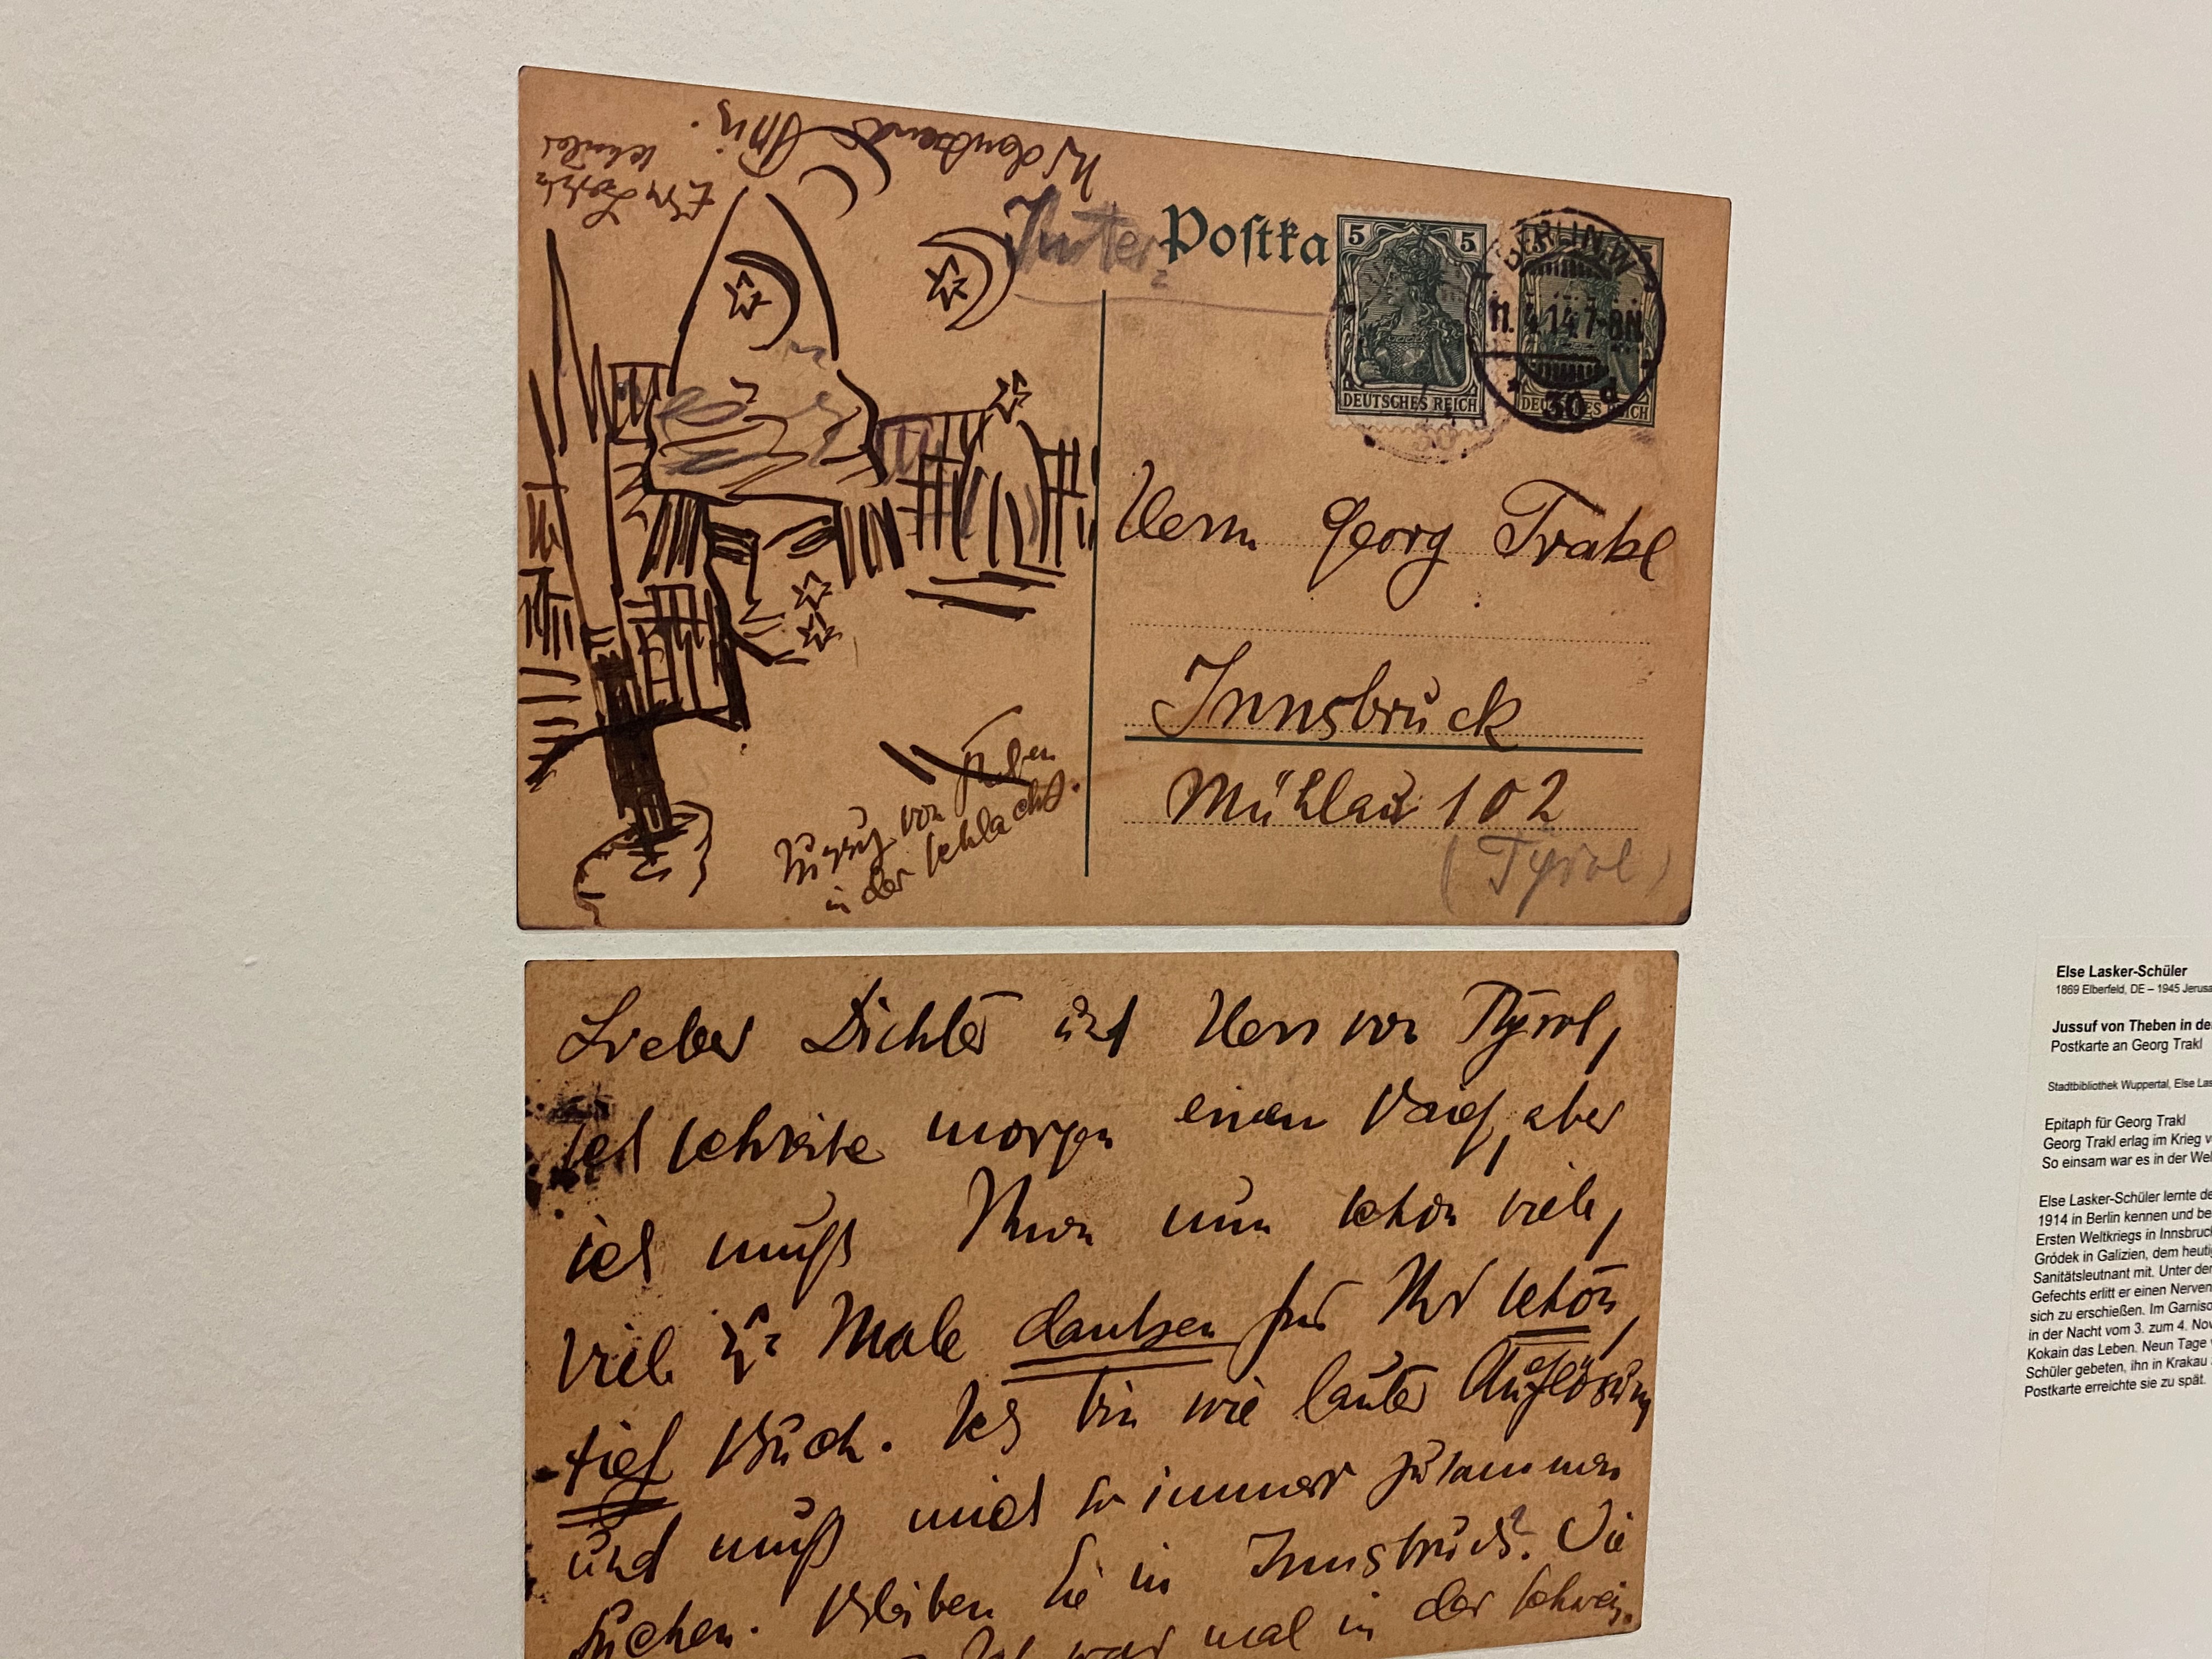 Else Lasker
Schüler
Postka
5 5
DEUTSCHES REICH
BERLIN.W
11.4.14.7-8N.
30 d
DEUTSCHES REICH
Herrn Georg Trakl
Innsbruck
Mühlau 102
(Tyrol)
Jussuf von Theben
in der Schlacht.
Lieber Dichter und Herr von Tyrol,
ich schreibe morgen einen Brief, aber
ich muß Ihnen nun schon viele,
viele Male danken für Ihr schön
tief Buch. Ich bin wie lauter Auflösung
und muß mich so immer zusammen
suchen. Bleiben Sie in Innsbruck? Die
war mal in der Schweiz.
Else Lasker-Schüler
1869 Elberfeld, DE – 1945 Jerusa
Jussuf von Theben in de
Postkarte an Georg Trakl
Stadtbibliothek Wuppertal, Else Las
Epitaph für Georg Trakl
Georg Trakl erlag im Krieg v
So einsam war es in der Wel
Else Lasker-Schüler lernte de
1914 in Berlin kennen und be
Ersten Weltkriegs in Innsbruc
Gródek in Galizien, dem heuti
Sanitätsleutnant mit. Unter der
Gefechts erlitt er einen Nerven
sich zu erschießen. Im Garniso
in der Nacht vom 3. zum 4. Nov
Kokain das Leben. Neun Tage v
Schüler gebeten, ihn in Krakau
Postkarte erreichte sie zu spät.